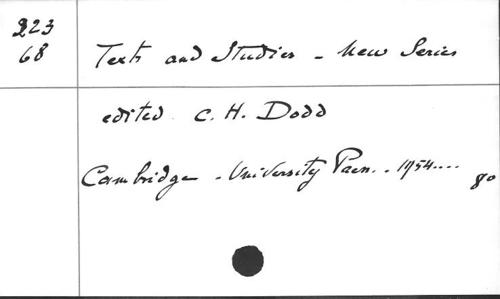 223
68
Texts and Studies - New Series
edited C. H. Dodd
Cambridge - University Press. - 1954....
8o